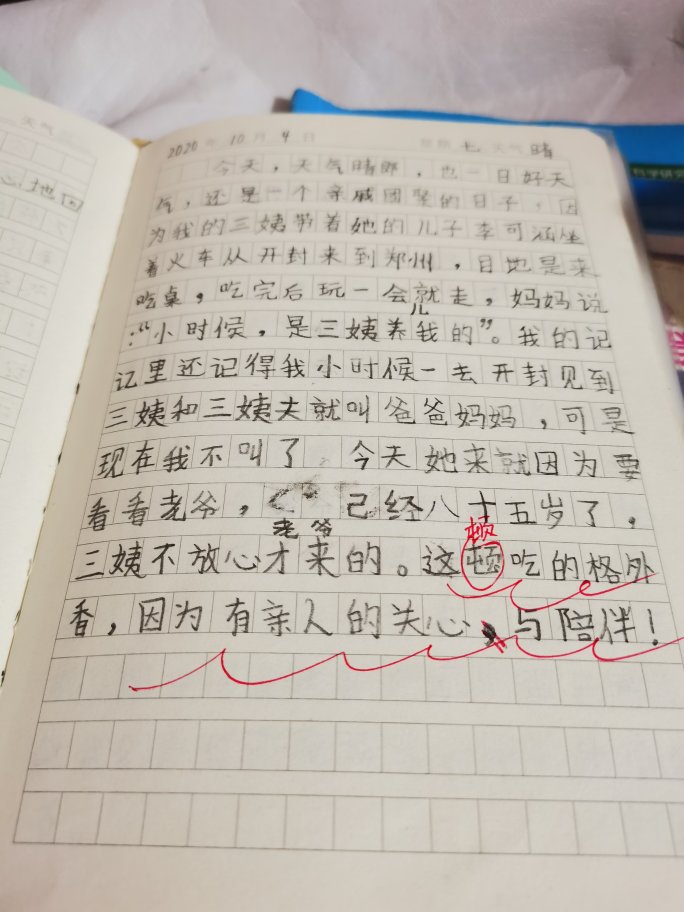 天气
心地
2020年10月4日 星期七 天气晴
哲学研究
今天，天气晴郎，也一日好天
气，还是一个亲戚团聚的日子，因
为我的三姨带着她的儿子李可涵坐
着火车从开封来到郑州，目地是来
吃桌，吃完后玩一会儿就走，妈妈说
：“小时候，是三姨养我的”。我的记
记里还记得我小时候一去开封见到
三姨和三姨夫就叫爸爸妈妈，可是
现在我不叫了 今天她来就因为要
看看老爷，老爷已经八十五岁了，
三姨不放心才来的。这顿吃的格外
顿
香，因为有亲人的关心、与陪伴！